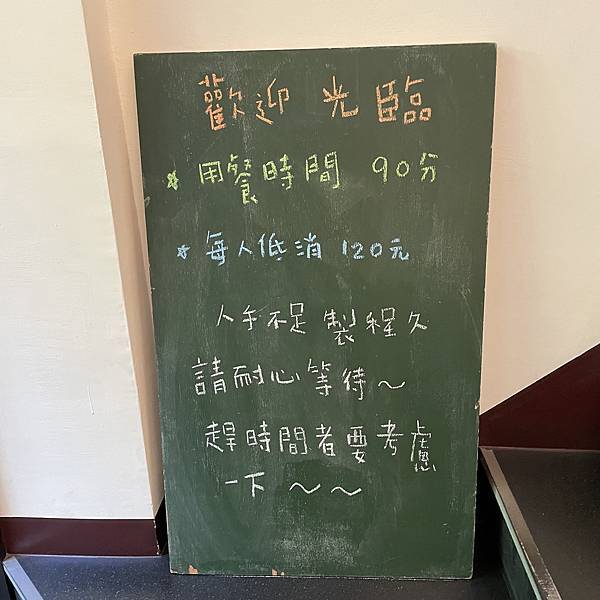 歡迎 光臨
☆用餐時間 90分
☆每人低消 120元
人手不足 製程久
請耐心等待～
趕時間者要考慮
一下～～